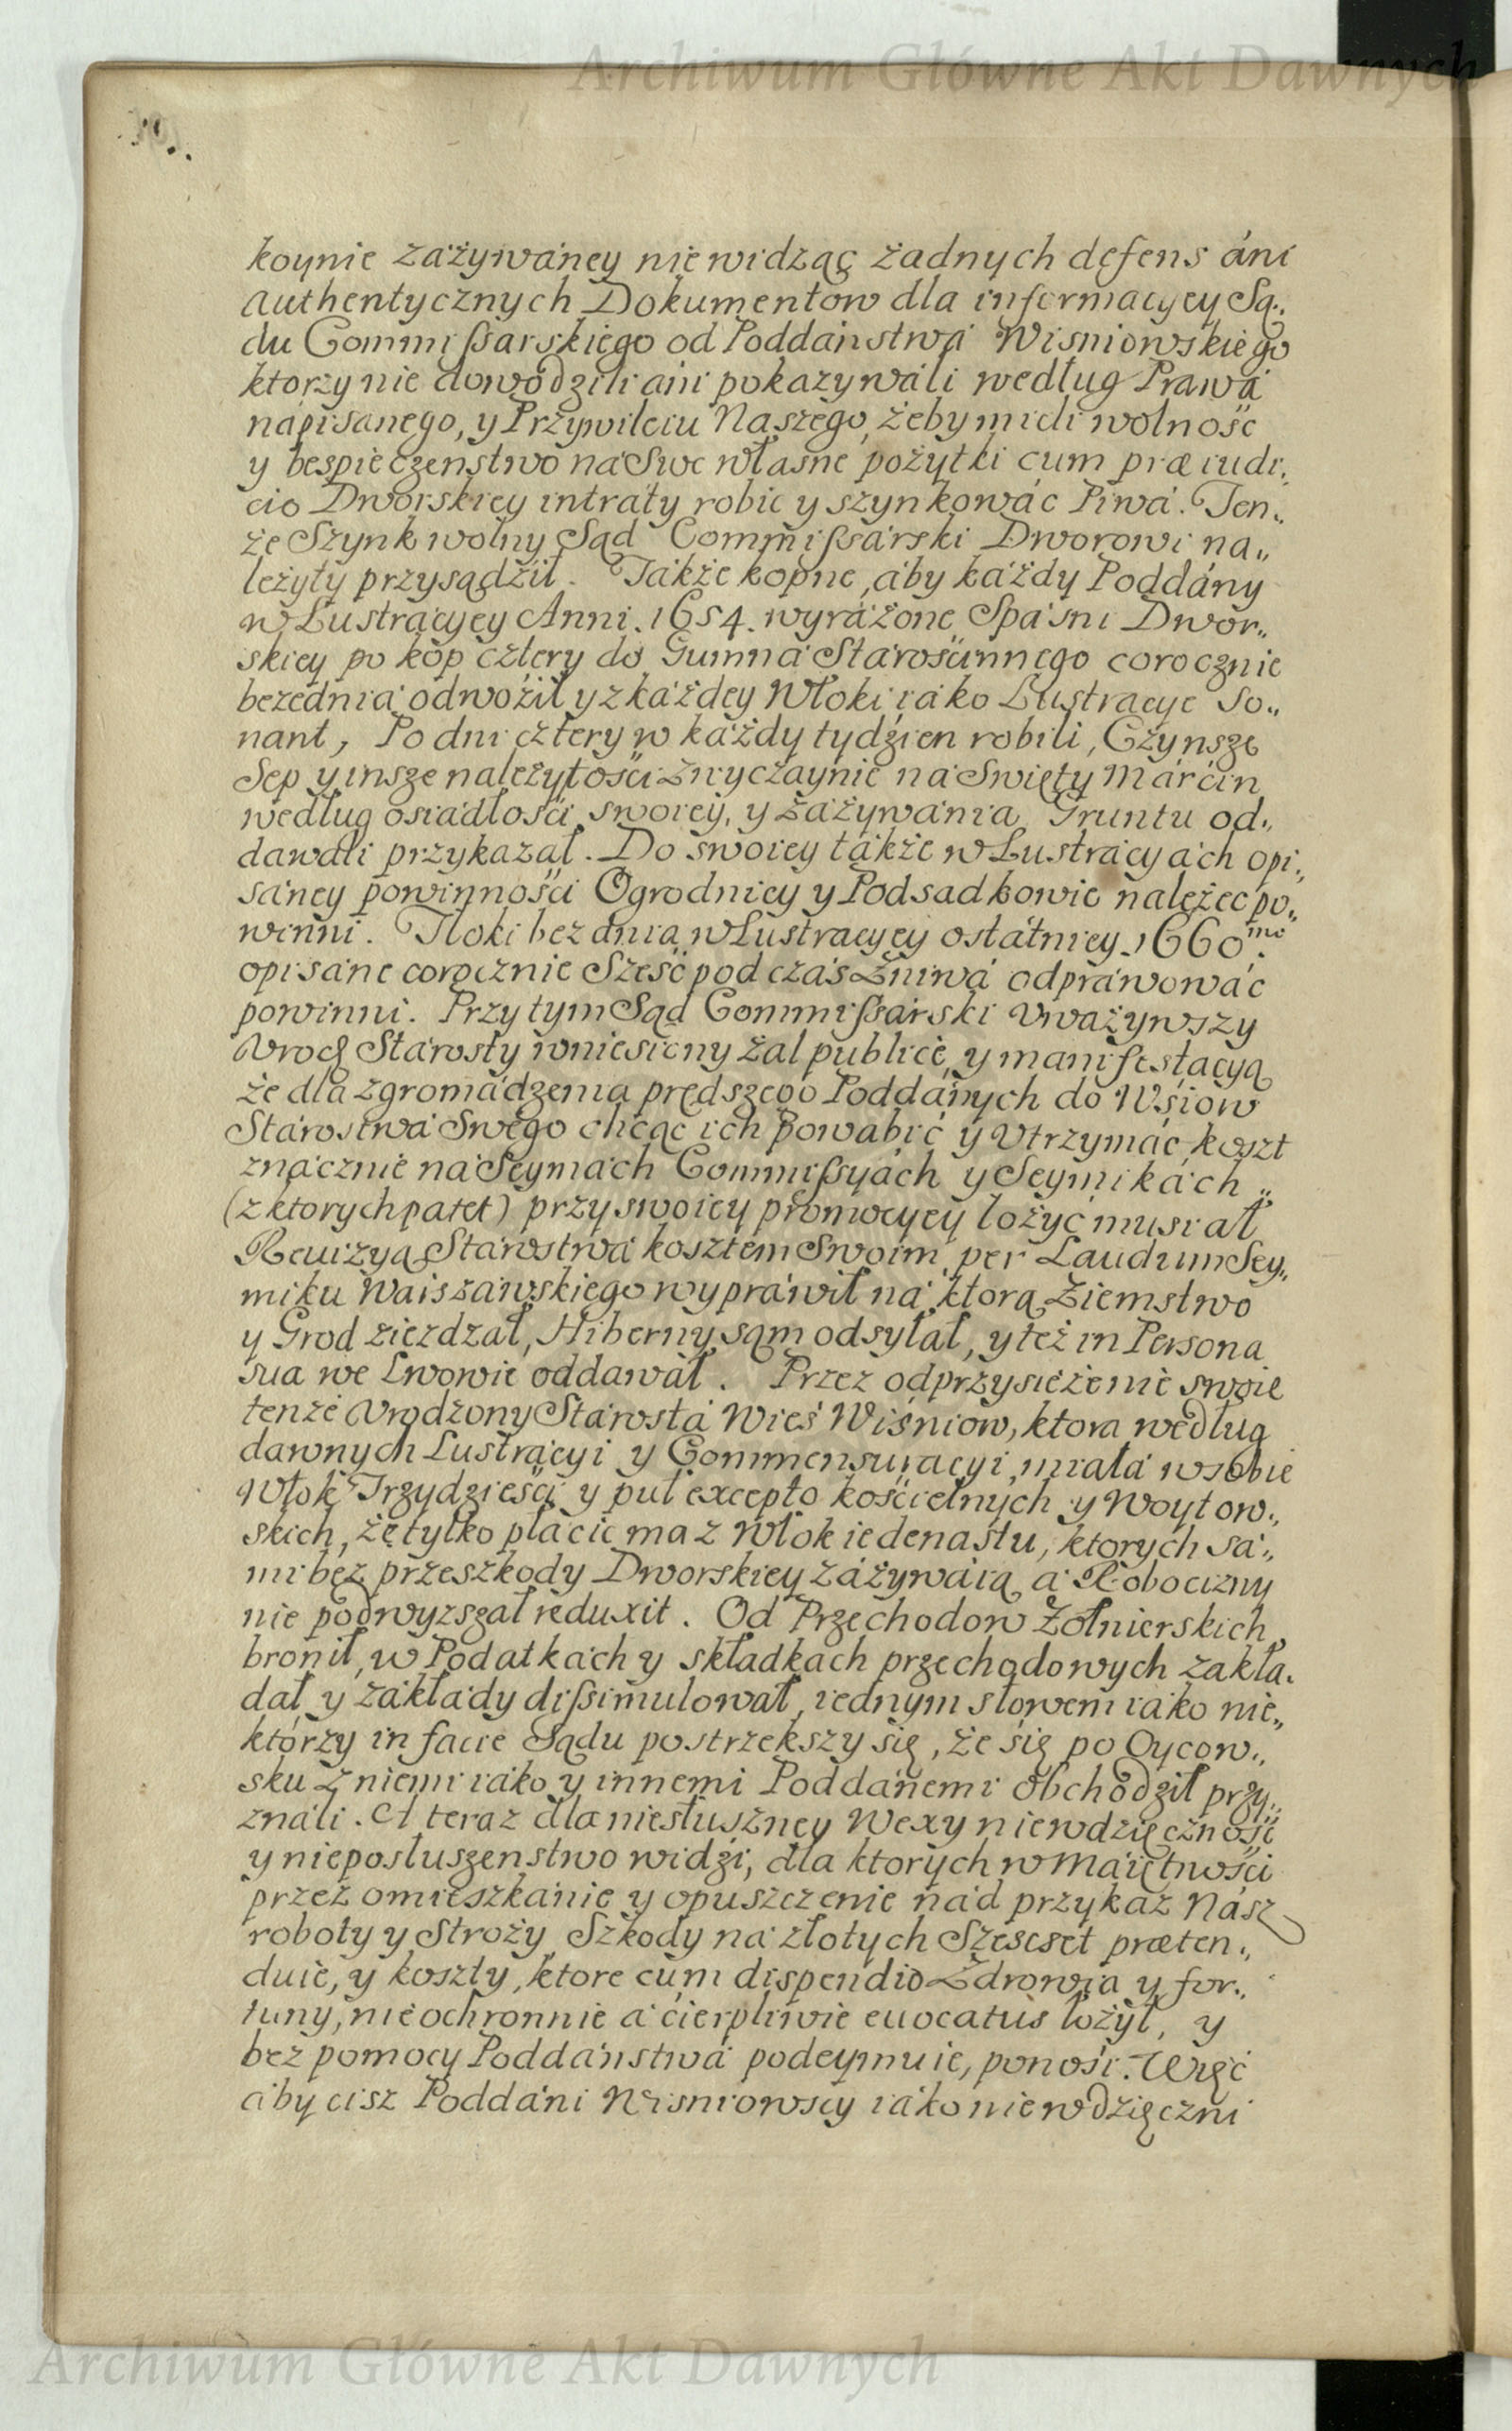 Archiwum Główne Akt Dawnych
koynie záżywáney nie widząc żadnych defens áni
Authentycznych Dokumentow dla informacyey Są„
du Commißarskiego od Poddánstwá Wisniowskiego
ktorzy nie dowodzili ani pokazywáli według Prawá
nápisanego, y Przywileiu Naszego, żeby mieli wolność
y bespieczenstwo ná Swe własne pożytki cum præiudi„
cio Dworskiey intraty robic y szynkowác Piwá. Ten„
że Szynk wolny Sąd Commißárski Dworowi na„
leżyty przysądźił. Tákże kopne, áby káżdy Poddány
w Lustrácyey Anni. 1654. wyráżone Spásni Dwor„
skiey po kop cztery do Gumná Stárościnnego corocznie
bezednia odwoźił y z káżdey Włoki iáko Lustracye So„
nant, Po dni cztery w káżdy tydzien robili, Czynsze
Sep y insze należytości zwyczáynie ná Swięty Márćin
według osiádłości swoiey, y záżywánia Gruntu od„
dawáli przykazał. Do swoiey tákże w Lustrácyách opi„
sáney powinności Ogrodnicy y Podsadkowie należec po„
winni. Tłoki bez dnia w Lustracyey ostátniey 1660mo.
opisáne corocznie Sześć pod czás Żniwá odpráwowáć
powinni. Przy tym Sąd Commißárski Uważywszy
Urodz Stárosty wniesiony żal publicè, y manifestacyą
że dla zgromádzenia prędszego Poddánych do Wsiow
Stárostwá Swego chcąc ich powabić y Utrzymáć, koszt
znácznie ná Seymách Commißyách y Seymikách „
(z ktorych patet) przy swoiey promocyey łożyć musiał
Rewizyą Stárostwá kosztem Swoim, per Laudum Sey„
miku Warszáwskiego wypráwił ná ktorą Ziemstwo
y Grod ziezdzał, Hiberny sąm odsyłał, y też in Persona
sua we Lwowie oddawáł. Przez odprzysiężenie swoie
tenże Urodzony Stárostá Wieś Wiśniow, ktora według
dawnych Lustrácyi y Commensuracyi, miáłá w sobie
Włok Trzydzieści y puł excepto kościelnych y Woytow„
skich, że tylko płacic ma z Włok iedenastu, ktorych sá„
mi bez przeszkody Dworskiey záżywáią á Robocizny
nie podwyzszał reduxit. Od Przechodow Żołnierskich
bronił, w Podatkách y składkach przechodowych zakła„
dał y zakłády dißimulował, iednym słowem iáko nie„
ktorzy in facie Sądu postrzekszy się, że się po Oycow„
sku z niemi iáko y innemi Poddánemi obchodził przy„
ználi. A teraz dla niesłuszney Wexy niewdzięczność
y nieposłuszenstwo widzi, dla ktorych w Máiętności
przez omieszkánie y opuszczenie nád przykaz Nász
roboty y Stroży Szkody ná złotych Szescset præten„
duie, y koszty, ktore cum dispendio Zdrowia y for„
tuny, nieochronnie á ćierpliwie euocatus łożył, y
bez pomocy Poddánstwá podeymuie, ponośi. Więc
áby cisz Poddáni Wisniowscy iáko niewdzięczni
Archiwum Główne Akt Dawnych